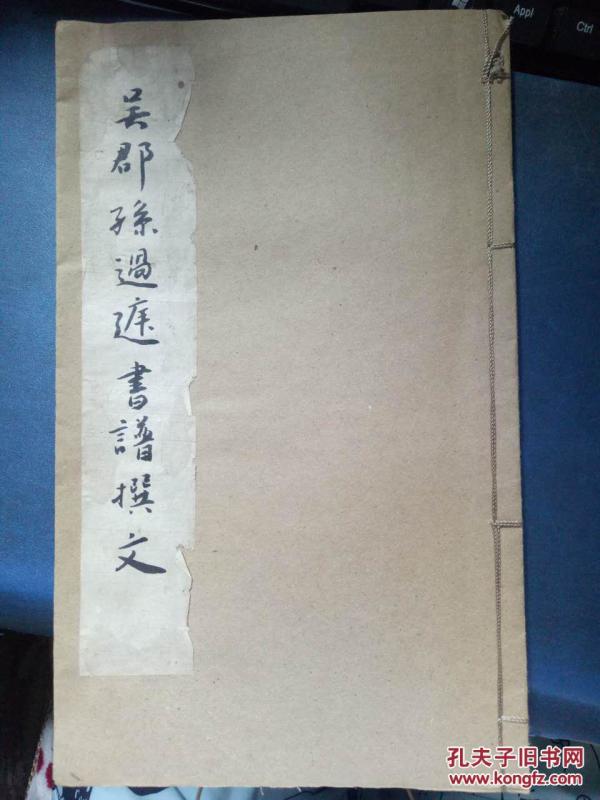 吴郡孫過庭書譜撰文
Appl
Ctrl
孔夫子旧书网
www.kongfz.com